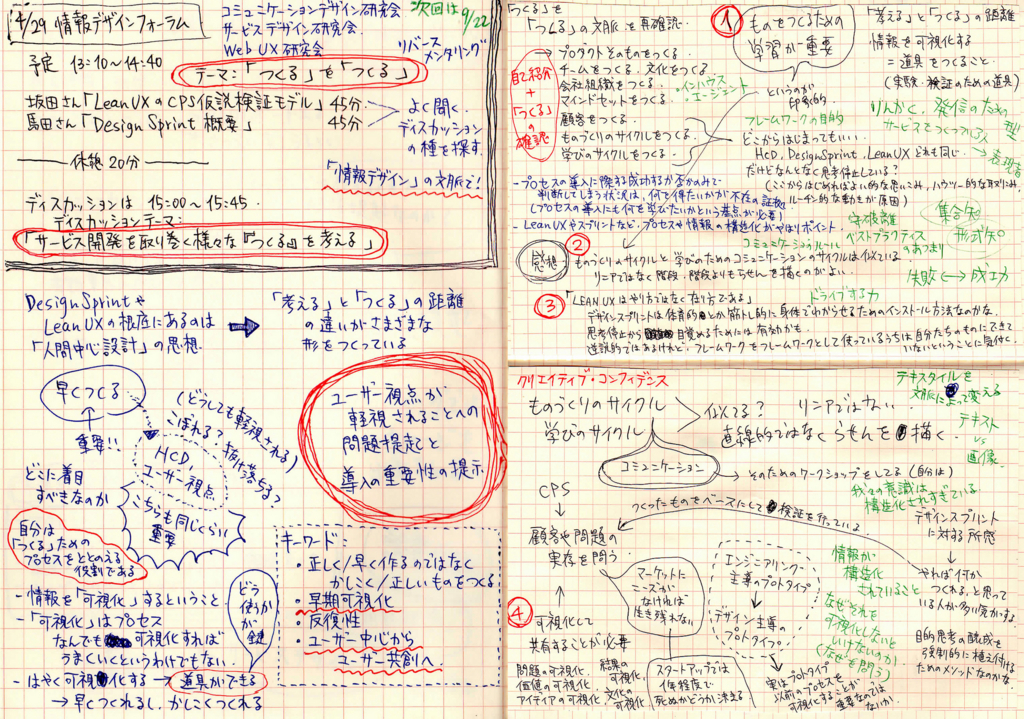 4/29 情報デザインフォーラム
コミュニケーションデザイン研究会
サービスデザイン研究会
Web UX 研究会
次回は 9/22
予定 13:10〜14:40
リバース
メンタリング
テーマ:「つくる」を「つくる」
坂田さん「Lean UXのCPS仮説検証モデル」45分
馬田さん「Design Sprint 概要」 45分
よく聞く。
ディスカッション
の種を探す。
休憩 20分
「情報デザイン」の文脈で!
ディスカッションは 15:00〜15:45.
ディスカッションテーマ:
「サービス開発を取り巻く様々な『つくる』を考える」
Design Sprintや
Lean UXの根底にあるのは
「人間中心設計」の思想.
「考える」と「つくる」の距離
の違いがさまざまな
形をつくっている
早くつくる
重要!!
(どうしても軽視される)
こぼれる?
抜け落ちる?
HCD,
ユーザー視点
どこに着目
すべきなのか
こちらも同じくらい
重要
ユーザー視点が
軽視されることへの
問題提起と
導入の重要性の提示
自分は
「つくる」ための
プロセスをととのえる
役割である
- 情報を「可視化」するということ
- 「可視化」はプロセス
なんでも可視化すれば
うまくいくというわけでもない.
- はやく可視化する → 道具ができる
→ 早くつくれるし、かしこくつくれる
どう
使うか
が
鍵
キーワード:
・正しく/早く作るのではなく
かしこく/正しいものをつくる
・早期可視化
・反復性
・ユーザー中心から
ユーザー共創へ
「つくる」を
「つくる」の文脈を再確認.
自己紹介
+
「つくる」
の
確認
→ プロダクトそのものをつくる.
チームをつくる. 文化をつくる
会社組織をつくる.
マインドセットをつくる.
・インハウス
・エージェント
顧客をつくる.
ものづくりのサイクルをつくる.
学びのサイクルをつくる.
①
ものをつくるための
学習が重要
というのが
印象的
フレームワークの目的
どこからはじまってもいい.
HCD, Design Sprint, Lean UX どれも同じ.
だけどなんとなく思考停止している?
(ここからはじめればよい的な思いこみ, ハウツー的な取りこみ,
ルーチン的な動きが原因)
「考える」と「つくる」の距離
情報を可視化する
=道具をつくること.
(実験・検証のための道具)
りんかく、発信のための型
サービスをつくっている人
→ 表現者
- プロセスの導入に際する成功するか否かのみで
判断してしまう状況は、何を得たいかが不在の証拠
(プロセスの導入にも何を学びたいかという基点が必要)
- Lean UXやスプリントなど、プロセスや情報の構造化がやはりポイント
コミュニケーションルール
守破離
ベストプラクティス
のあつまり
集合知
形式知
失敗 ←→ 成功
感想
②
・ものづくりのサイクルと学びのためのコミュニケーションのサイクルは似ている.
リニアではなく階段. 階段よりもらせんを描くのがよい.
ドライブする力
③
「LEAN UXはやり方ではなく在り方である」
デザインスプリントは体育的とか筋トレ的に身体でわからせるためのインストール方法なのかな.
思考停止から目覚めるためには有効かも.
逆説的ではあるけれど、フレームワークをフレームワークとして使っているうちは自分たちのものにできて
いないということに気付く.
クリエイティブ・コンフィデンス
ものづくりのサイクル
学びのサイクル
似てる? リニアではない.
直線的ではなくらせんを描く.
テキスタイルを
文脈によって変える
テキスト
vs
画像.
コミュニケーション
→ そのためのワークショップをしてる(自分は)
我々の意識は
構造化されすぎている
CPS
つくったものをベースにして検証を行っていく
顧客や問題の
実存を問う
デザインスプリント
に対する所感
やれば何か
つくれる、と思って
いる人が多い気がする.
目的思考の醸成を
強制的に植え付ける
ためのメソッドなのかな.
情報が
構造化
されていること
なぜそれを
可視化しないと
いけないのか
(なぜを問う)
マーケットに
ニーズが
なければ
生き残れない
エンジニアリング
主導のプロトタイプ
デザイン主導の
プロトタイプ.
④
可視化して
共有することが必要
問題の可視化,
価値の可視化,
アイデアの可視化,
結果の
可視化,
文化の
可視化
スタートアップでは
1年程度で
死ぬかどうか決まる
実はプロトタイプ
以前のプロセスを
可視化することが
重要なのでは
ないか.